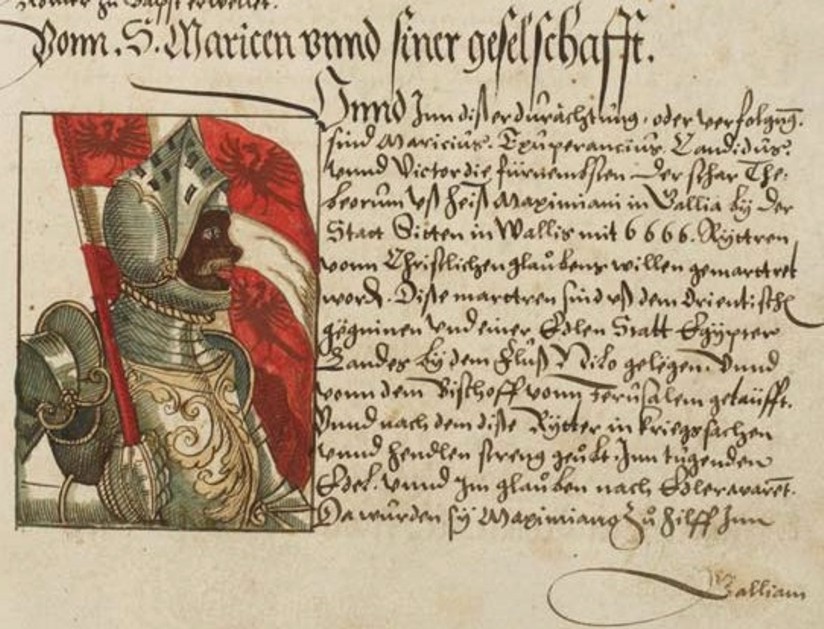 Römer zů Bapst erwellet.
Vonn. S. Maricen vnnd siner geselschafft.
Vnnd Jnn diser durächtung, oder verfolgūg.
sind Maricius. Exuperancius. Candidus.
vnnd Victor die fürnembsten der schar The-
beorum vß heiß Maximiani in Gallia by der
Statt Sitten in Wallis mit 6666. Ryttren
vonn Christlichen glaŭbens willen gemarctret
wordē. Diße marctren sind vß dem Orientischē
gögninen vnd einer Edlen Statt Egypter
Landes by dem Fluß Nilo gelegen. vnnd
vonn dem Bischoff vonn Jerusalem getäufft.
Vnnd nach dem diße Rytter in kriegssachen
vnnd hendlen streng geübt. Jnn tugenden
Edel. vnnd Jm glaŭben nach Edler warēt.
Da wurden sy Maximiano zů hilff Jnn
Galliam